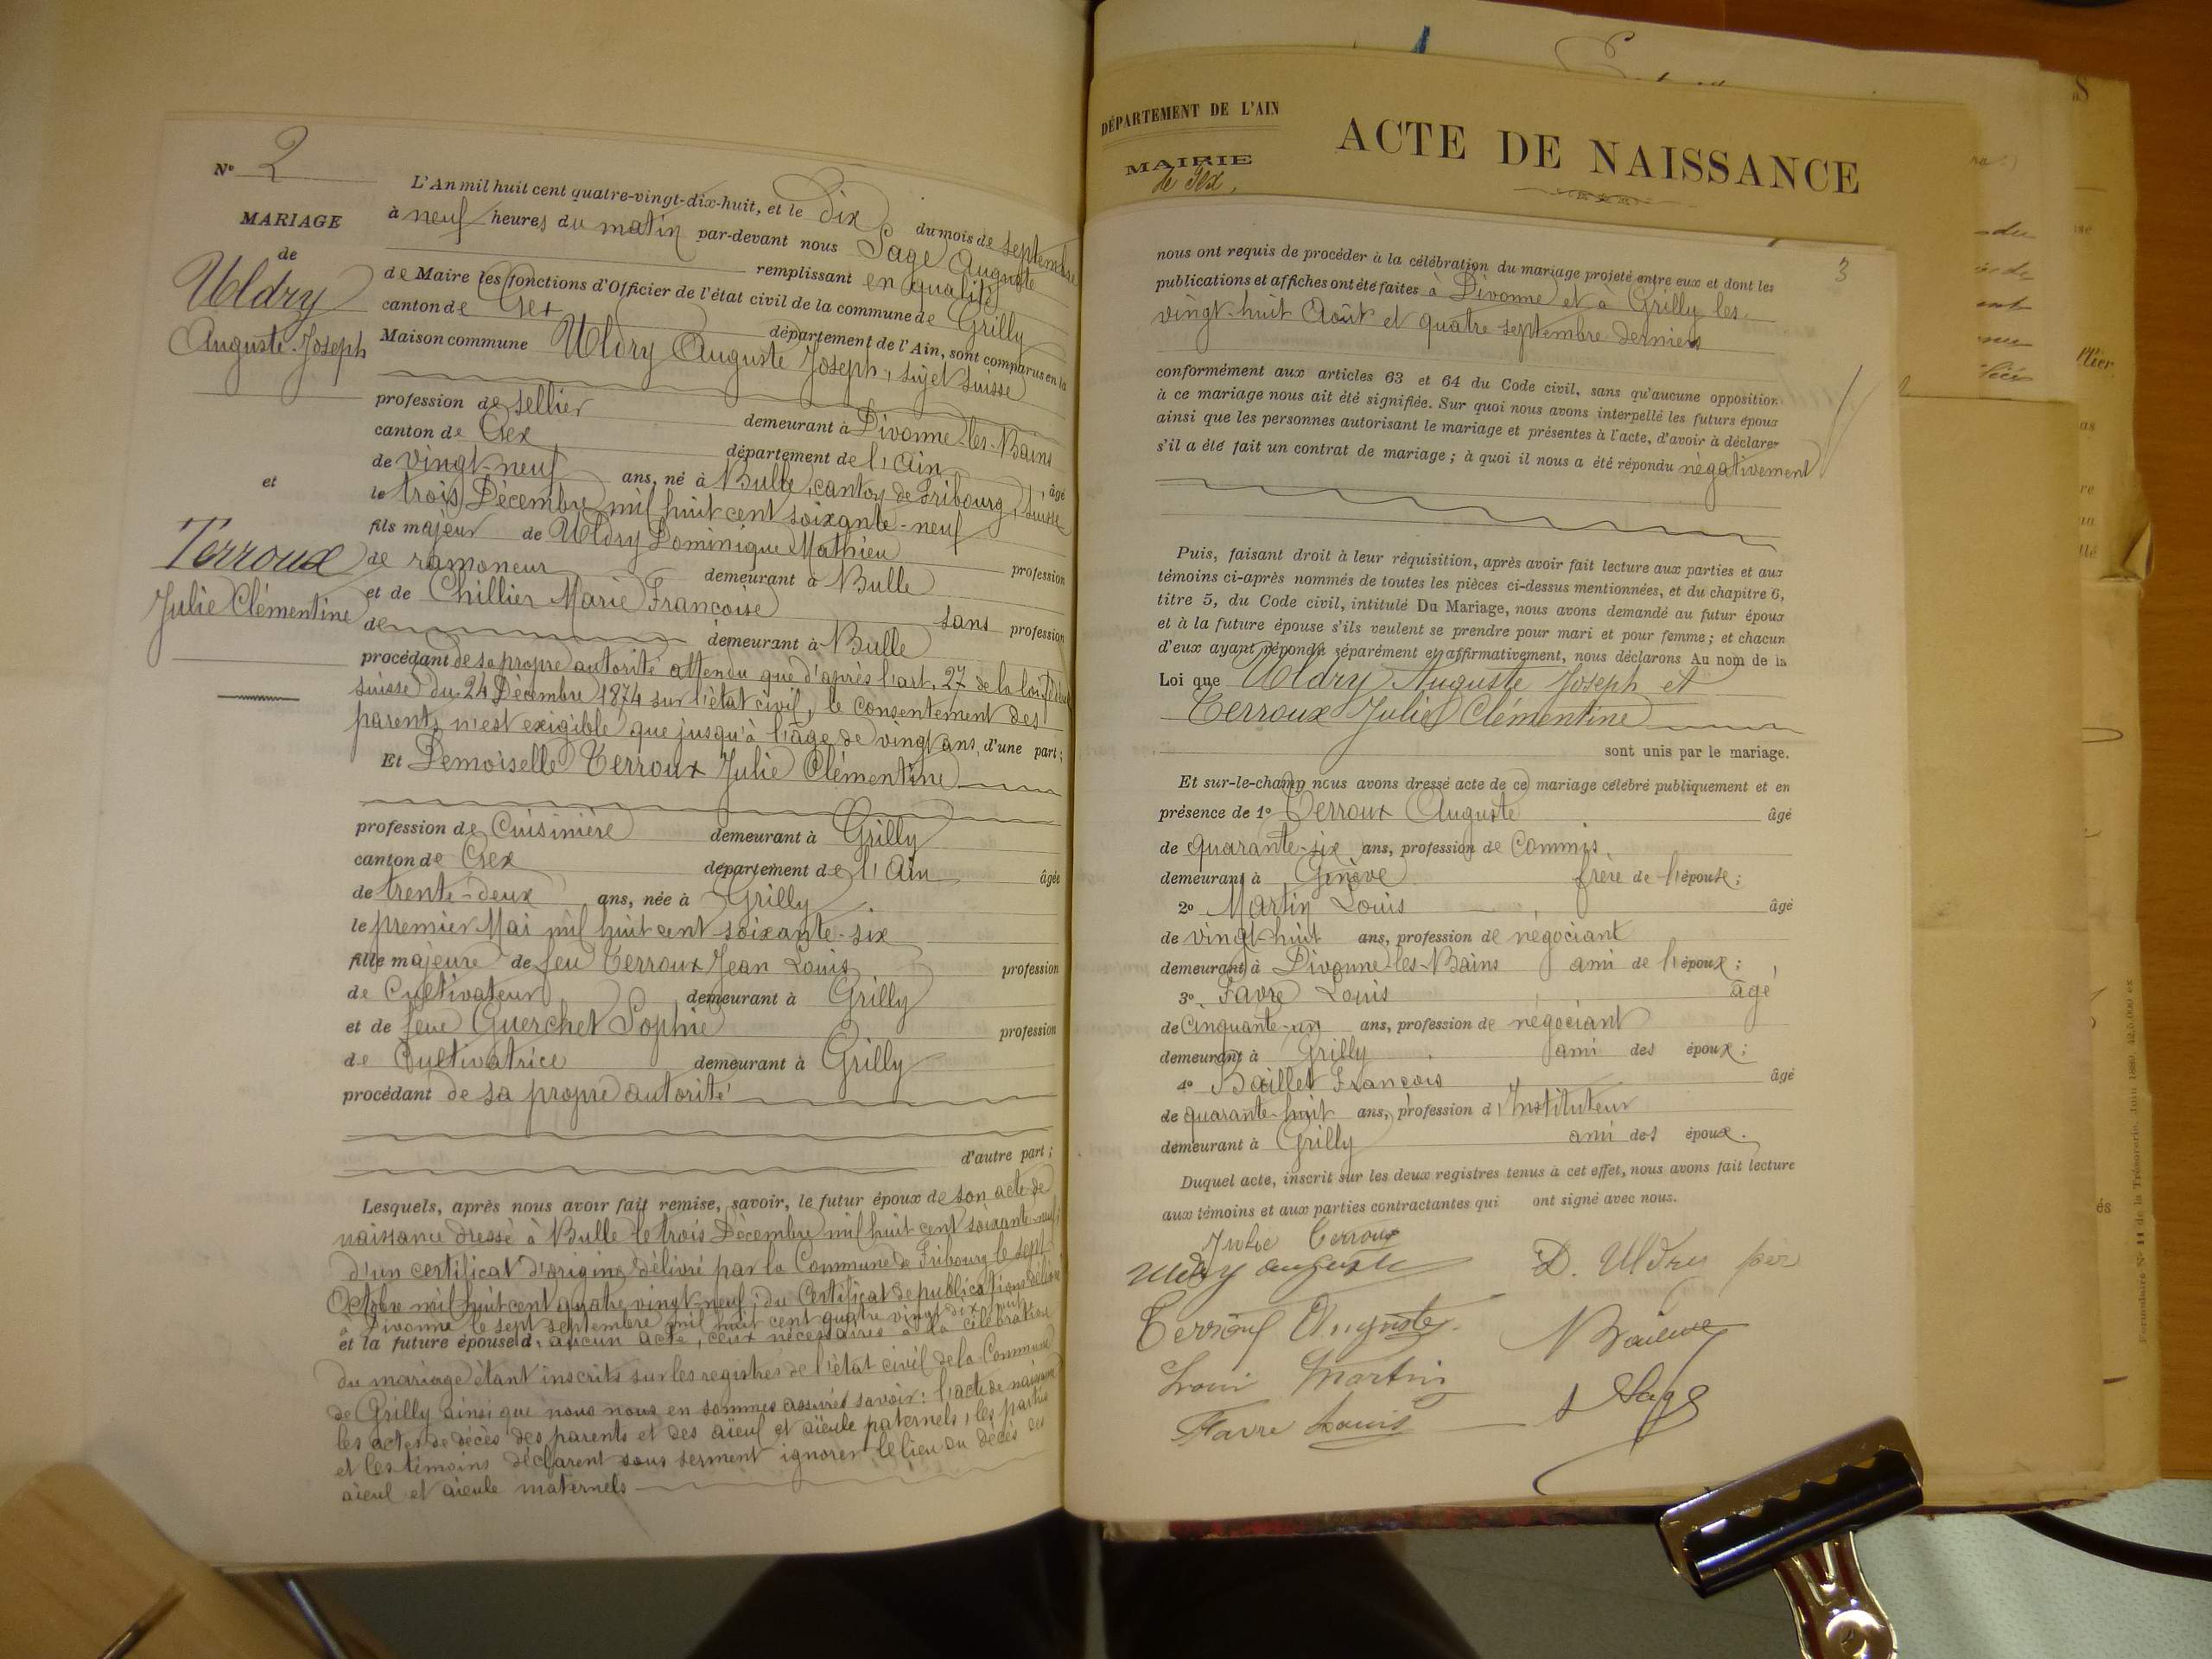 N° 2
MARIAGE
de
Uldry
Auguste-Joseph
et
Terroux
Julie Clémentine
L'An mil huit cent quatre-vingt-dix-huit, et le dix du mois de septembre
à neuf heures du matin par-devant nous Sage Auguste
remplissant en qualité
de Maire les fonctions d'Officier de l'état civil de la commune de Grilly
canton de Gex département de l'Ain, sont comparus en la
Maison commune Uldry Auguste Joseph, sujet suisse
profession de sellier demeurant à Divonne-les-Bains
canton de Gex département de l'Ain, âgé
de vingt-neuf ans, né à Bulle, canton de Fribourg, Suisse
le trois Décembre mil huit cent soixante-neuf
fils majeur de Uldry Dominique Mathieu profession
de ramoneur demeurant à Bulle
et de Chillier Marie Françoise sans profession
de demeurant à Bulle
procédant de sa propre autorité attendu que d'après l'art. 27 de la loi
suisse du 24 Décembre 1874 sur l'état civil, le consentement des
parents n'est exigible que jusqu'à l'âge de vingt ans, d'une part;
Et Demoiselle Terroux Julie Clémentine
profession de Cuisinière demeurant à Grilly
canton de Gex département de l'Ain âgée
de trente-deux ans, née à Grilly
le premier Mai mil huit cent soixante-six
fille majeure de feu Terroux Jean Louis profession
de Cultivateur demeurant à Grilly
et de feue Guerchet Sophie profession
de Cultivatrice demeurant à Grilly
procédant de sa propre autorité
d'autre part;
Lesquels, après nous avoir fait remise, savoir, le futur époux de son acte de
naissance dressé à Bulle le trois Décembre mil huit cent soixante-neuf;
d'un certificat d'origine délivré par la Commune de Fribourg le sept
Octobre mil huit cent quatre vingt-neuf; du Certificat de publications délivré
à Divonne le sept septembre mil huit cent quatre vingt dix huit
et la future épouse d'aucun acte, ceux nécessaires à la célébration
du mariage étant inscrits sur les registres de l'état civil de la Commune
de Grilly ainsi que nous nous en sommes assurés savoir: l'acte de naissance
les actes de décès des parents et des aïeul et aïeule paternels, les parties
et les témoins déclarent sous serment ignorer le lieu du décès des
aïeul et aïeule maternels
DÉPARTEMENT DE L'AIN
MAIRIE
de Gex,
ACTE DE NAISSANCE
3
nous ont requis de procéder à la célébration du mariage projeté entre eux et dont les
publications et affiches ont été faites à Divonne et à Grilly les
vingt-huit Août et quatre septembre derniers
conformément aux articles 63 et 64 du Code civil, sans qu'aucune opposition
à ce mariage nous ait été signifiée. Sur quoi nous avons interpellé les futurs époux
ainsi que les personnes autorisant le mariage et présentes à l'acte, d'avoir à déclarer
s'il a été fait un contrat de mariage; à quoi il nous a été répondu négativement
Puis, faisant droit à leur réquisition, après avoir fait lecture aux parties et aux
témoins ci-après nommés de toutes les pièces ci-dessus mentionnées, et du chapitre 6,
titre 5, du Code civil, intitulé Du Mariage, nous avons demandé au futur époux
et à la future épouse s'ils veulent se prendre pour mari et pour femme; et chacun
d'eux ayant répondu séparément et affirmativement, nous déclarons Au nom de la
Loi que Uldry Auguste Joseph et
Terroux Julie Clémentine
sont unis par le mariage.
Et sur-le-champ nous avons dressé acte de ce mariage célébré publiquement et en
présence de 1° Terroux Auguste âgé
de quarante-six ans, profession de Commis,
demeurant à Genève frère de l'épouse;
2° Martin Louis âgé
de vingt-huit ans, profession de négociant
demeurant à Divonne-les-Bains ami de l'époux;
3° Favre Louis âgé
de Cinquante-un ans, profession de négociant
demeurant à Grilly ami des époux;
4° Baillet François âgé
de quarante-huit ans, profession d'Instituteur
demeurant à Grilly ami des époux.
Duquel acte, inscrit sur les deux registres tenus à cet effet, nous avons fait lecture
aux témoins et aux parties contractantes qui ont signé avec nous.
Julie Terroux
Uldry auguste D. Uldry père
Terroux Auguste
Louis Martin
Favre Louis Sage
Formulaire N° 11 de la Trésorerie.